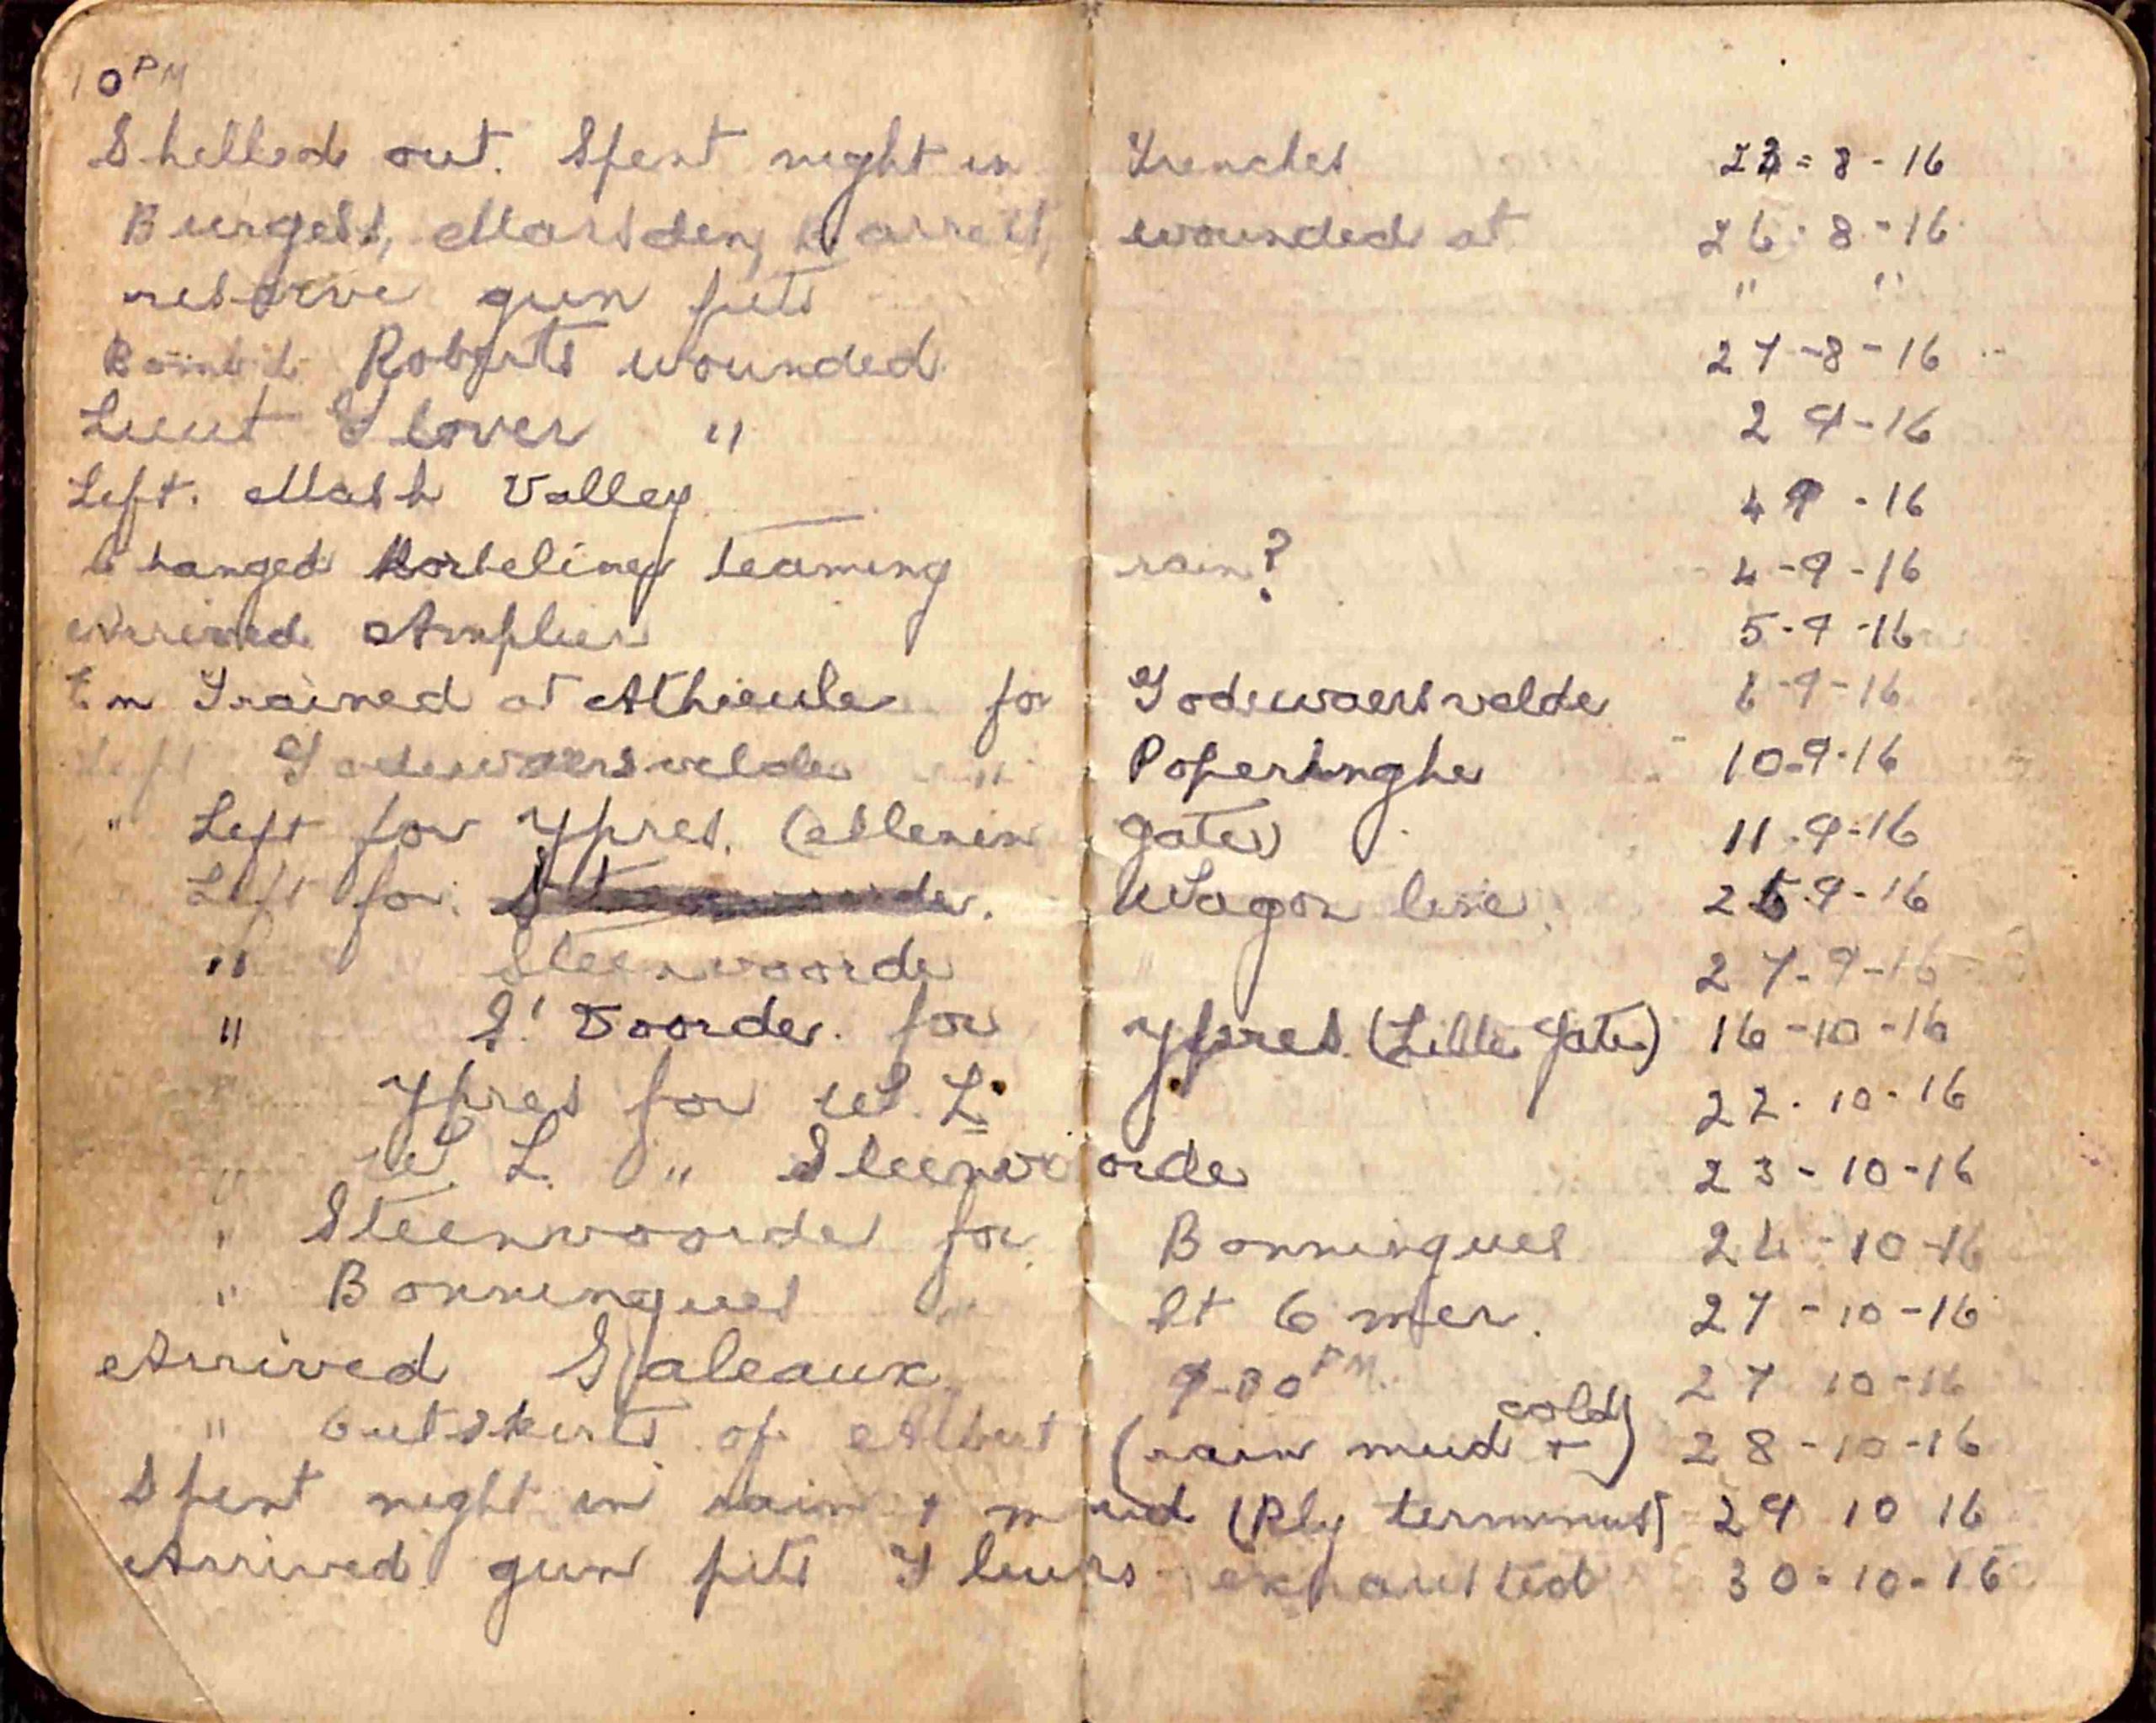 10 PM
Shelled out. Spent night in Trenches 23-8-16
Burgess, Marsden, Barrett, wounded at 26-8-16
reserve gun pits " "
Bomb'd Roberts wounded 27-8-16
Lieut Glover " 2 9-16
Left. Mash Valley 4 9-16
Changed Horselines teaming rain? 4-9-16
Arrived Amplier 5-9-16
En Trained at Athieule for Godewaersvelde 6-9-16
Left Godewaersvelde " Poperhinghe 10-9-16
" Left for Ypres. (Menin gate) 11-9-16
Left for Wagon line. 25-9-16
" Steenvoorde " 27-9-16
" S' Voorde. for Ypres (Lille gate) 16-10-16
" Ypres for W. L. 22-10-16
" W. L. " Steenvoorde 23-10-16
" Steenvoorde for Bonningues 24-10-16
" Bonningues " St Omer. 27-10-16
Arrived Saleaux 9-30 PM. 27 10-16
" outskirts of Albert (rain mud + cold) 28-10-16
Spent night in rain & mud (Rly terminus) 29 10 16
Arrived gun pits Fleurs exhausted 30-10-16